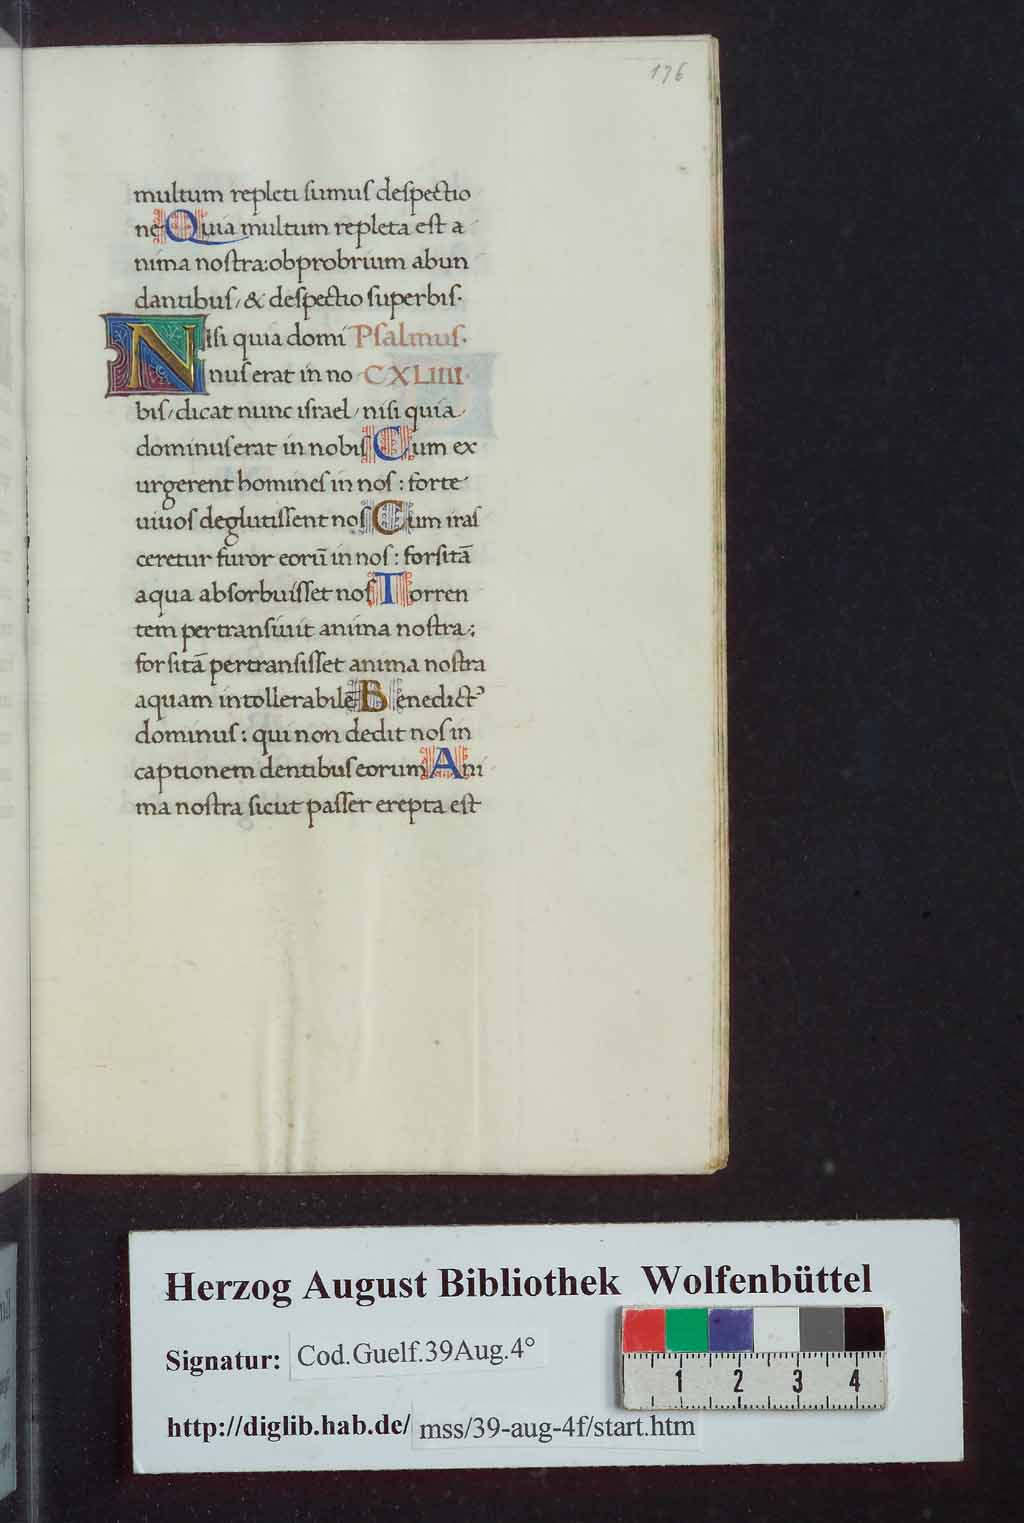 176
multum repleti sumus despectio
ne Quia multum repleta est a
nima nostra: obprobrium abun
dantibus/ & despectio superbis·
Nisi quia domi Psalmus·
nus erat in no CXLIIII·
bis/ dicat nunc israel/ nisi quia
dominus erat in nobis Cum ex
urgerent homines in nos: forte
uiuos deglutissent nos Cum iras
ceretur furor eorū in nos: forsitā
aqua absorbuisset nos Torren
tem pertransiuit anima nostra:
forsitā pertransisset anima nostra
aquam intollerabilē Benedictꝰ
dominus: qui non dedit nos in
captionem dentibus eorum Ani
ma nostra sicut passer erepta est
Herzog August Bibliothek Wolfenbüttel
Signatur: Cod.Guelf.39Aug.4°
http://diglib.hab.de/ mss/39-aug-4f/start.htm
1 2 3 4